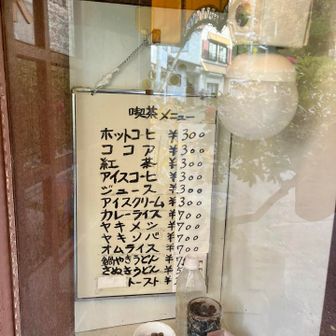 喫茶メニュー
ホットコーヒ ¥300
ココア ¥300
紅茶 ¥300
アイスコーヒ ¥300
ジュース ¥300
アイスクリーム ¥300
カレーライス ¥700
ヤキメシ ¥700
ヤキソバ ¥700
オムライス ¥700
鍋やきうどん ¥
さぬきうどん ¥5
トースト